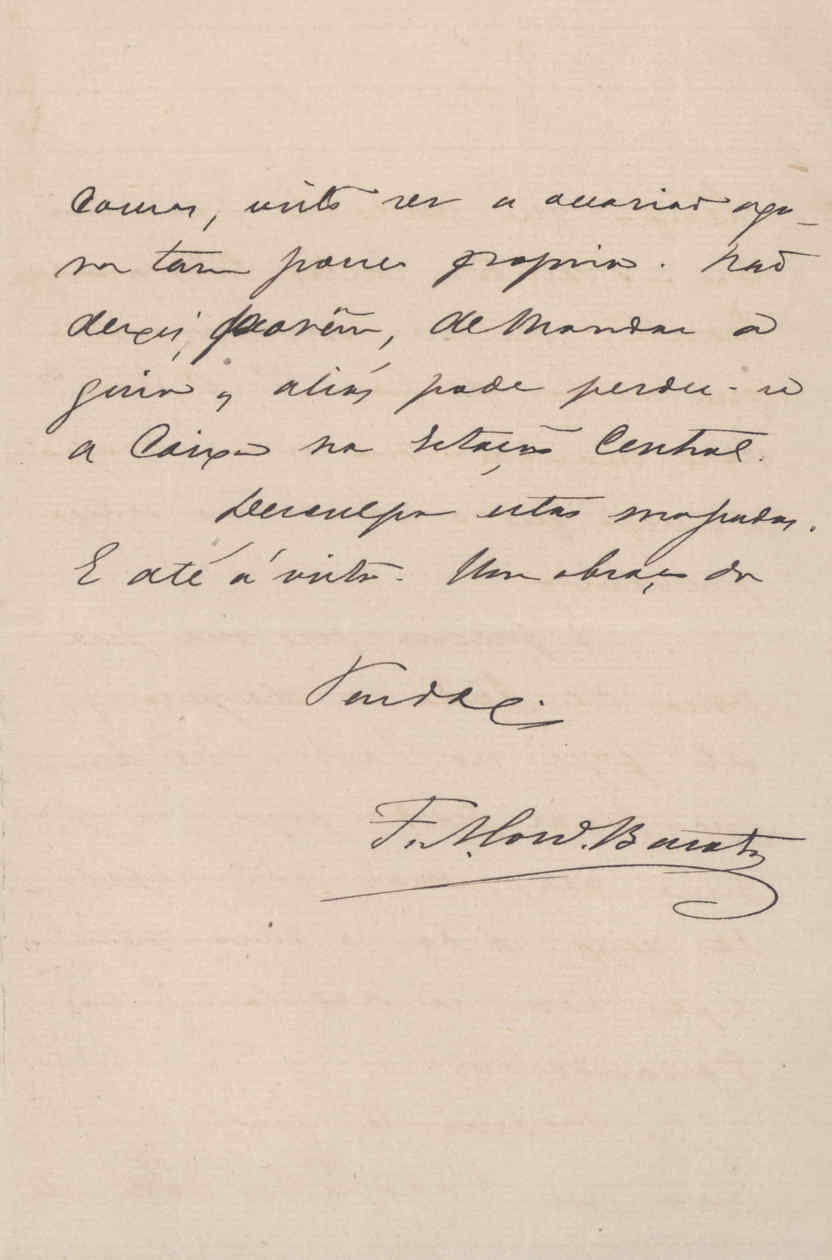 cousas, visto ser a occasião ago-
ra tam pouco propria. Não
deixes, porém, de mandar a
guia, aliás pode perder-se
a Caixa na Estação Central.
Desculpa estas massadas.
E até á vista. Um abraço do
F. A. Lord. Barata